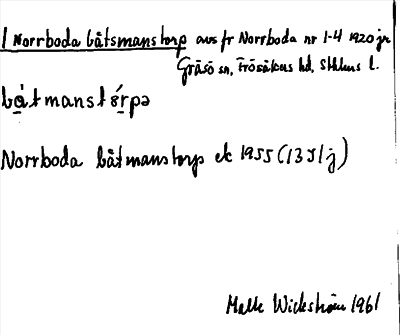 1 Norrboda båtsmanstorp avs fr Norrboda nr 1-4 1920 jr
Gräsö sn, Frösåkers hd, Sthlms l.
Norrboda båtmanstorp ek 1955 (13 J 1 j)
Malte Wickström 1961